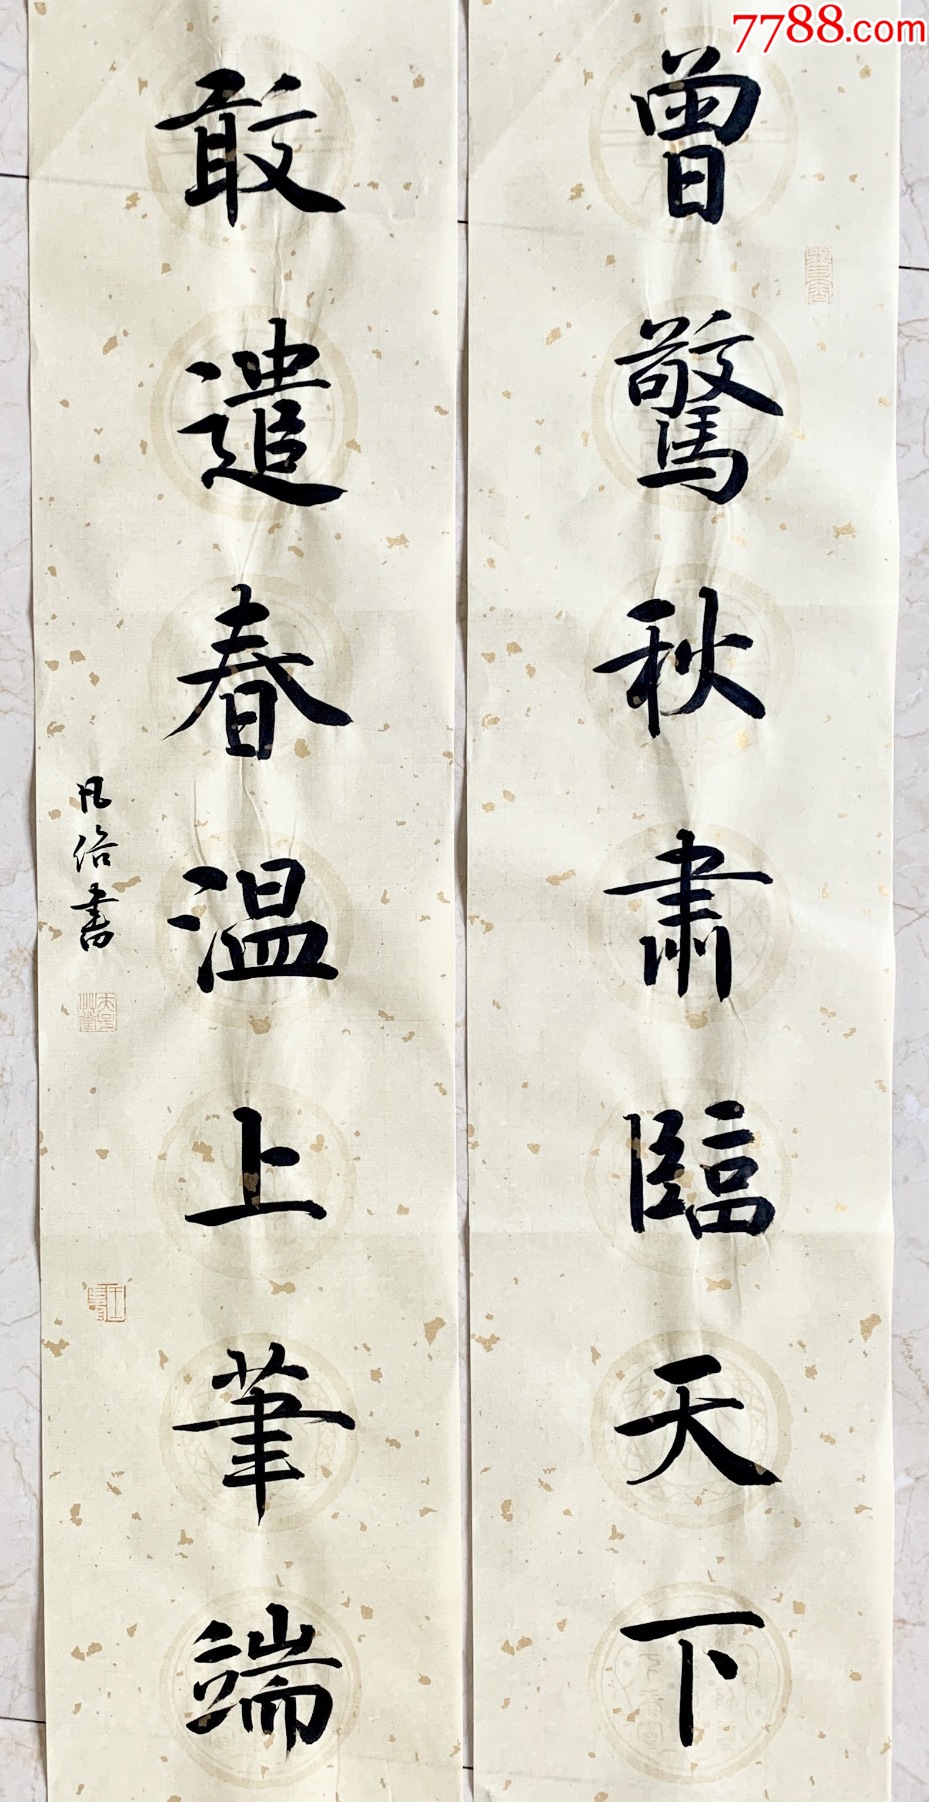 7788.com
曾驚秋肅臨天下
敢遣春溫上筆端